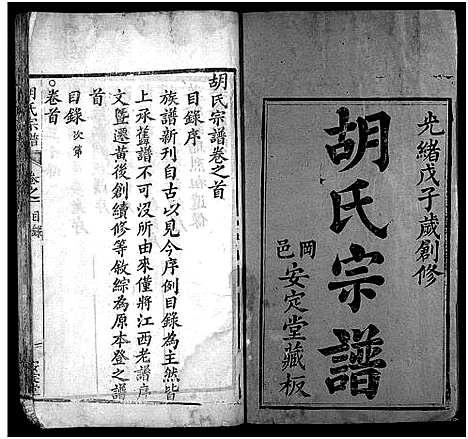 光緒戊子歲創修
胡氏宗譜
岡邑安定堂藏板
胡氏宗譜卷之首
目錄序
族譜新刊自古以見今序例目錄為主然皆
上承舊譜不可沒所由來僅將江西老譜序
文暨遷黃後創續修等敘綜為原本登之譜
首
目錄次第
○卷首
胡氏宗譜
卷之
目錄